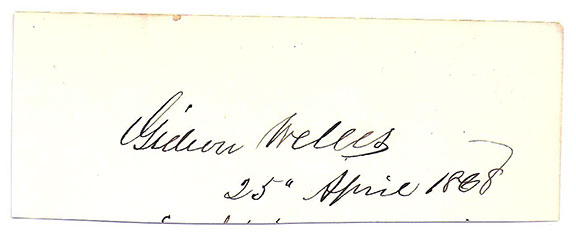 Gideon Welles
25" April 1868